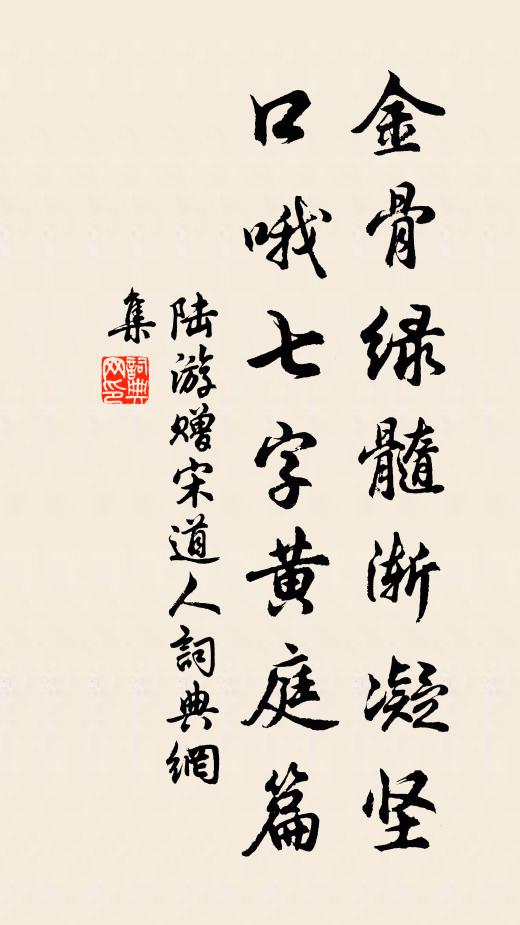 金骨绿髓渐凝坚
口哦七字黄庭篇
陆游赠宋道人詞典網
集
詞典
网印